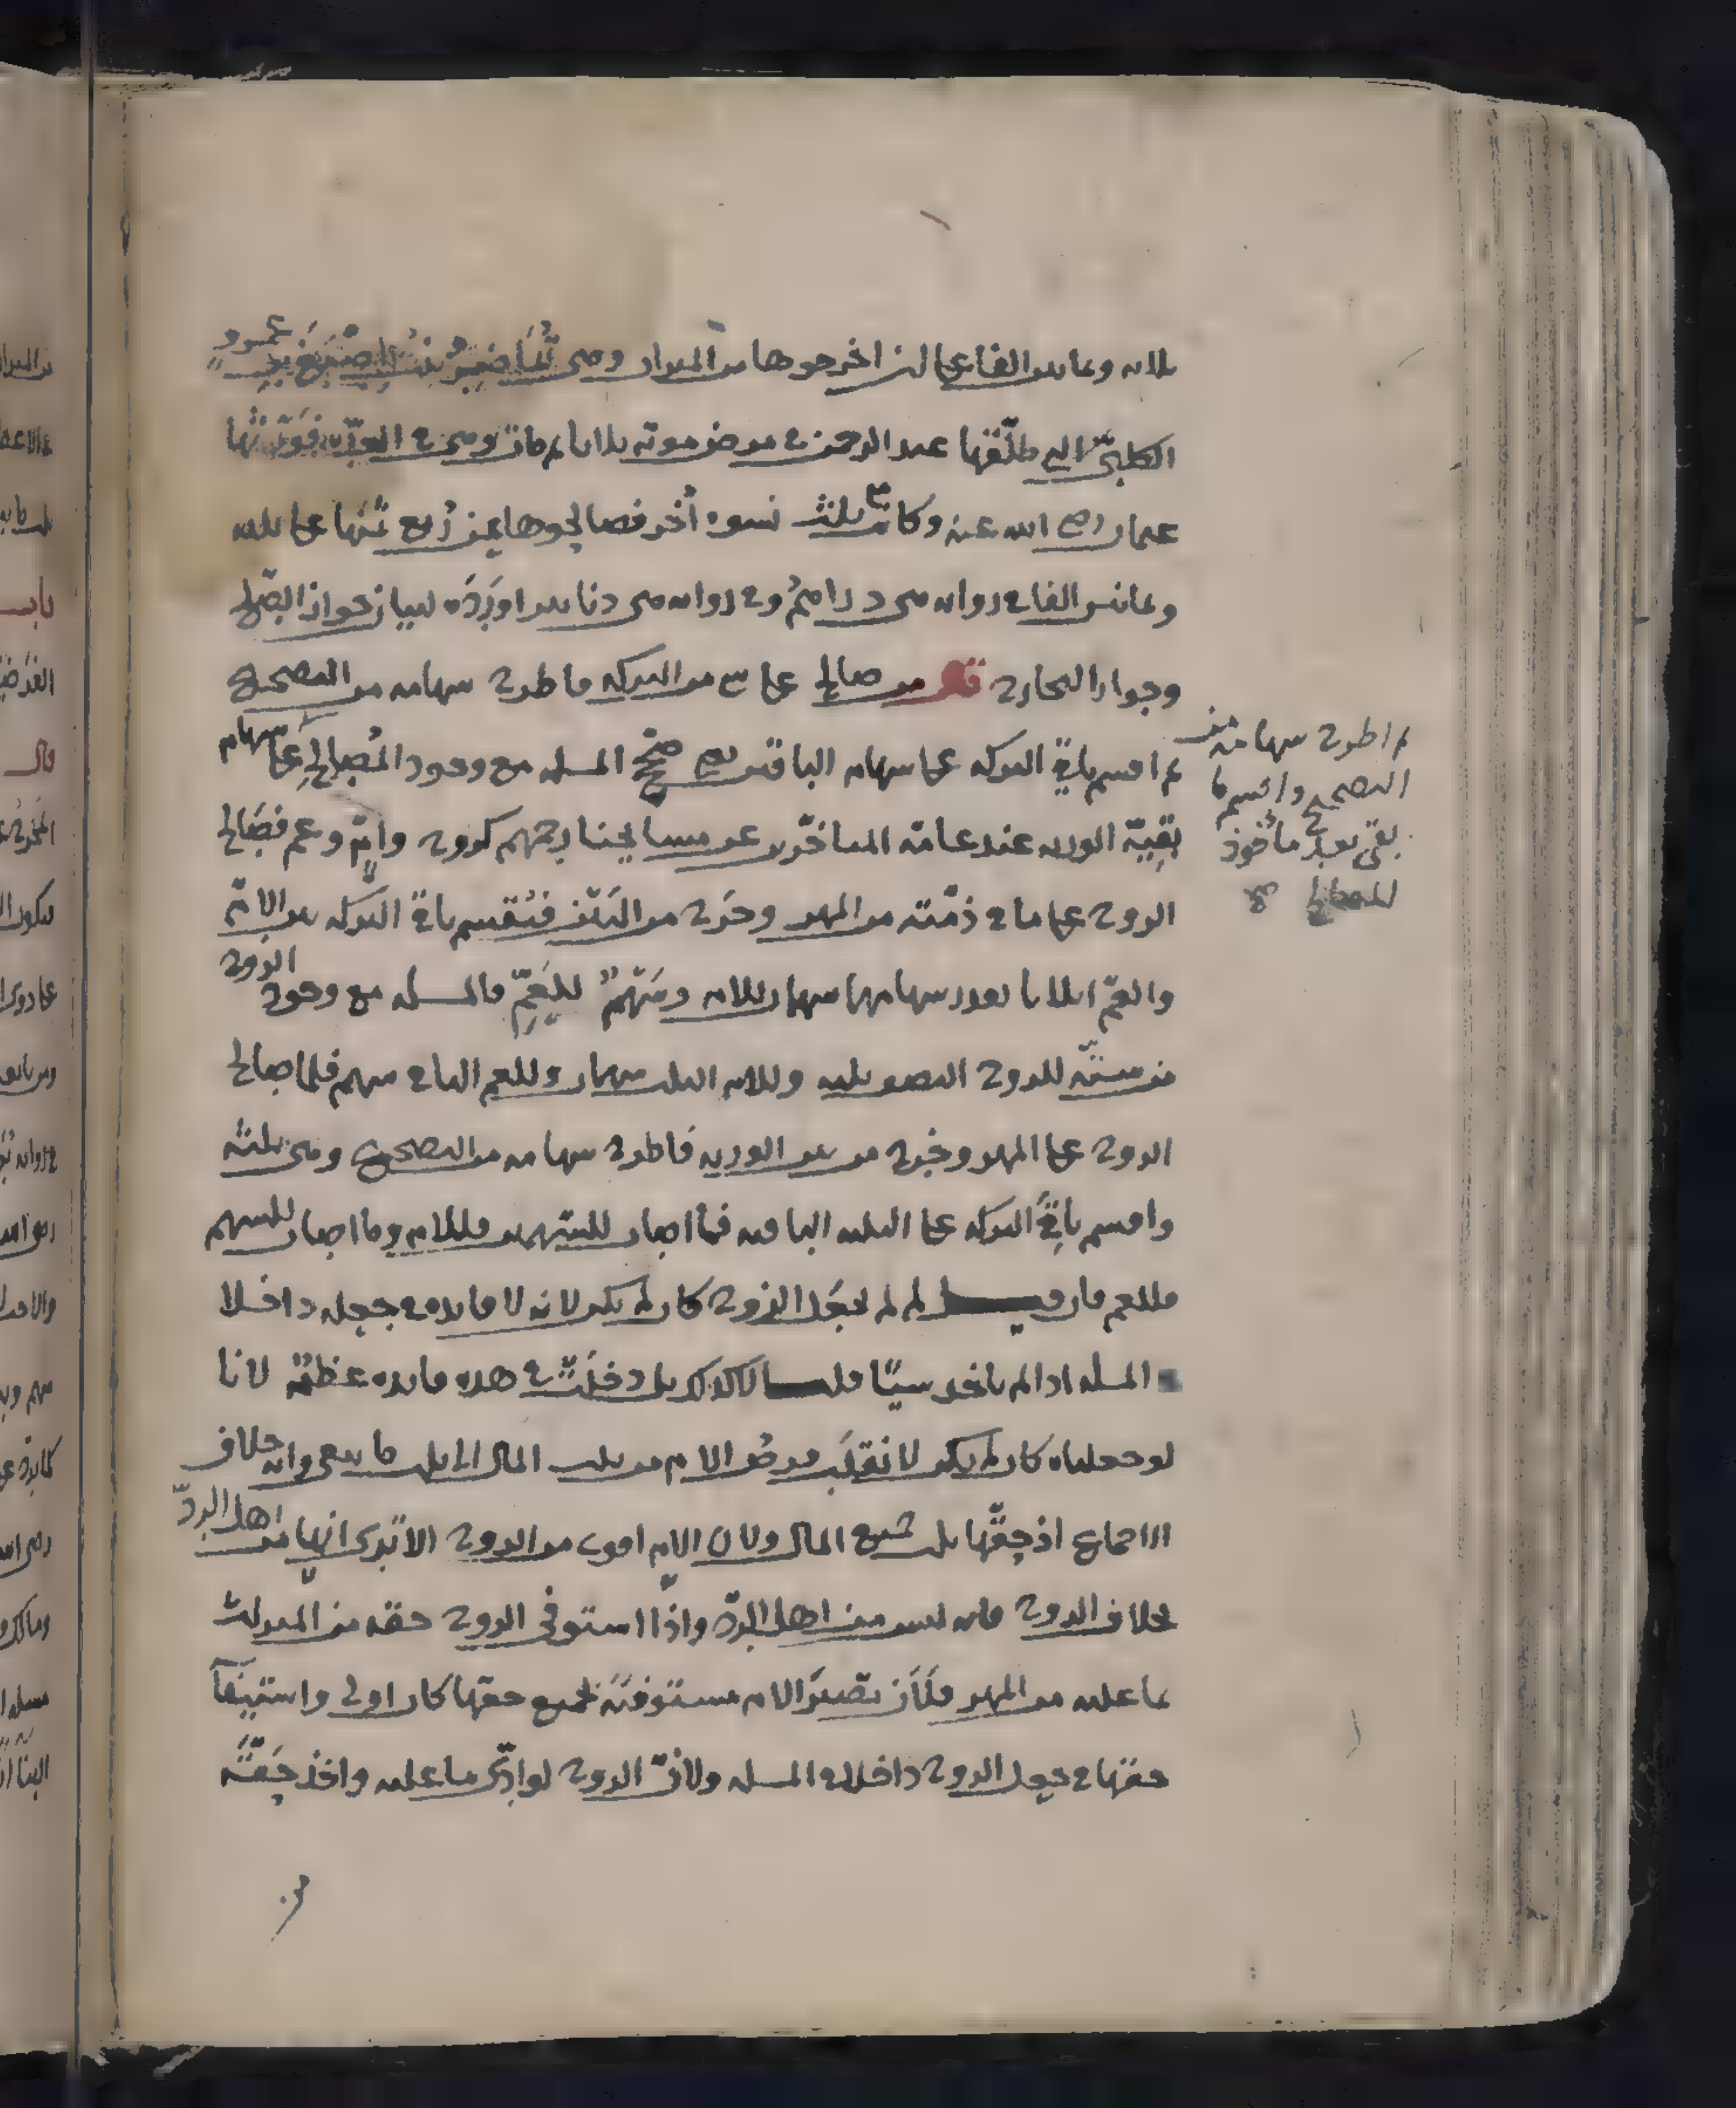 ثلاثه وثمانين الفا على ان اخرجوها من الميراث وهي تماضر بنت اصبغ بن عمرو
الكلبي التي طلّقها عبد الرحمن في مرض موته ثلاثا ثم مات وهي في العدّة فورّثها
عثمان رضي الله عنه وكانت مع ثلث نسوه أُخر فصالحوها عن رُبع ثمنها على ثلثه
وثمانين الفا في روايه هي دراهمُ وفي روايه هي دنانير اورده لبيان جواز الصلح
وجواز التخارج قال من صالح على شئ من التركه فاطرح سهامه من التصحيح
ثم اقسم باقي التركه على سهام الباقين يعني صحّح المسله مع وجود المُصالح على سهام
بقيّة الورثه عند عامّة المتاخّرين من مشايخنا رحمهم كزوج وامّ وعم فصالح
الزوج على ما في ذمّته من المهر وخرج من البين فتُقسم باقي التركه بين الامّ
والعمّ اثلاثا بقدر سهامهما سهمان للام وسَهمٌ للعَمّ فالمسله مع وجود الزوج
من ستّه للزوج النصف ثلثه وللام الثلث سهمان وللعم الباقي سهم فلما صالح
الزوج على المهر وخرج من بين الورثه فاطرح سهامه من التصحيح وهي ثلثه
واقسم باقيَ التركه على الثلثه الباقيه فما اصاب للسهمين فللام وما اصاب للسهم
فللعم فان قيل لم لم يجعل الزوج كان لم يكن لانه لا فايده في جعله داخلا
المسله اذا لم ياخذ شيًا قلنا كذلك بل دخلت في هذه فايده عظيمة لانا
لو جعلناه كان لم يكن لانقلب فرضُ الام من ثلث المال الى ثلث ما بقي وانه خلاف
الاجماع اذ حقّها ثلث جميع المال ولان الام اقوى من الزوج الا ترى انها من اهل الردّ
بخلاف الزوج فانه ليس من اهل الردّ واذا استوفى الزوج حقه من الميراث
بما عليه من المهر فلَأن تصيرَ الام مستوفيَة لجميع حقها كان اولى واستيفآ
حقها في جعل الزوج داخلا في المسله ولانّ الزوج لو ادّى ما عليه واخذ حَقَّه
ثم اطرح سهامه من
التصحيح واقسم ما
بقي بعد مأخوذ
المصالح